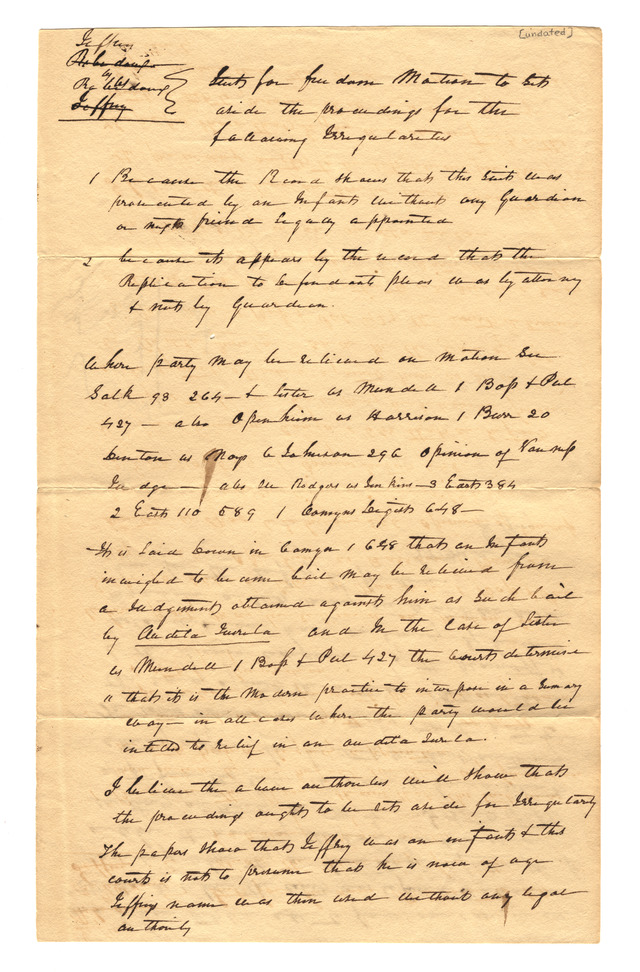 [undated]
Jeffrey
vs
Jeffrey
Suit for freedom Motion to Set
aside the proceedings for the
following Irregularities
1 Because the Record shows that this Suit was
prosecuted by an Infant without any Guardian
or next friend legally appointed
2 because it appears by the record that the
Replication to defendants pleas was by attorney
& not by Guardian.
Where party may be relieved on motion See
Salk 93 264 — & Lister vs Mundell 1 Bos & Pul
427 — also Openhiem vs Harrison 1 Burr 20
vs 6 Johnson 296 Opinion of
Judge — also See Rodgers vs Jenkins — 3 East 384
2 East 110 589 1 Comyns Digest 648 —
It is laid down in Comyn 1 648 that an Infant
inveigled to become bail may be relieved from
a Judgment obtained against him as Such bail
by Audita Querela and In the Case of Lister
vs Mundell 1 Bos & Pul 427 the courts determine
" that it is the Modern practice to interpose in a Sumary
way — in all cases where the party would be
intitled to relief in an audita Querela.
I believe the above authorities will show that
the proceedings ought to be set aside for Irregularity
The papers show that Jeffrey was an infant & this
court is not to presume that he is now of age
Jeffrys name was then used without any legal
authority